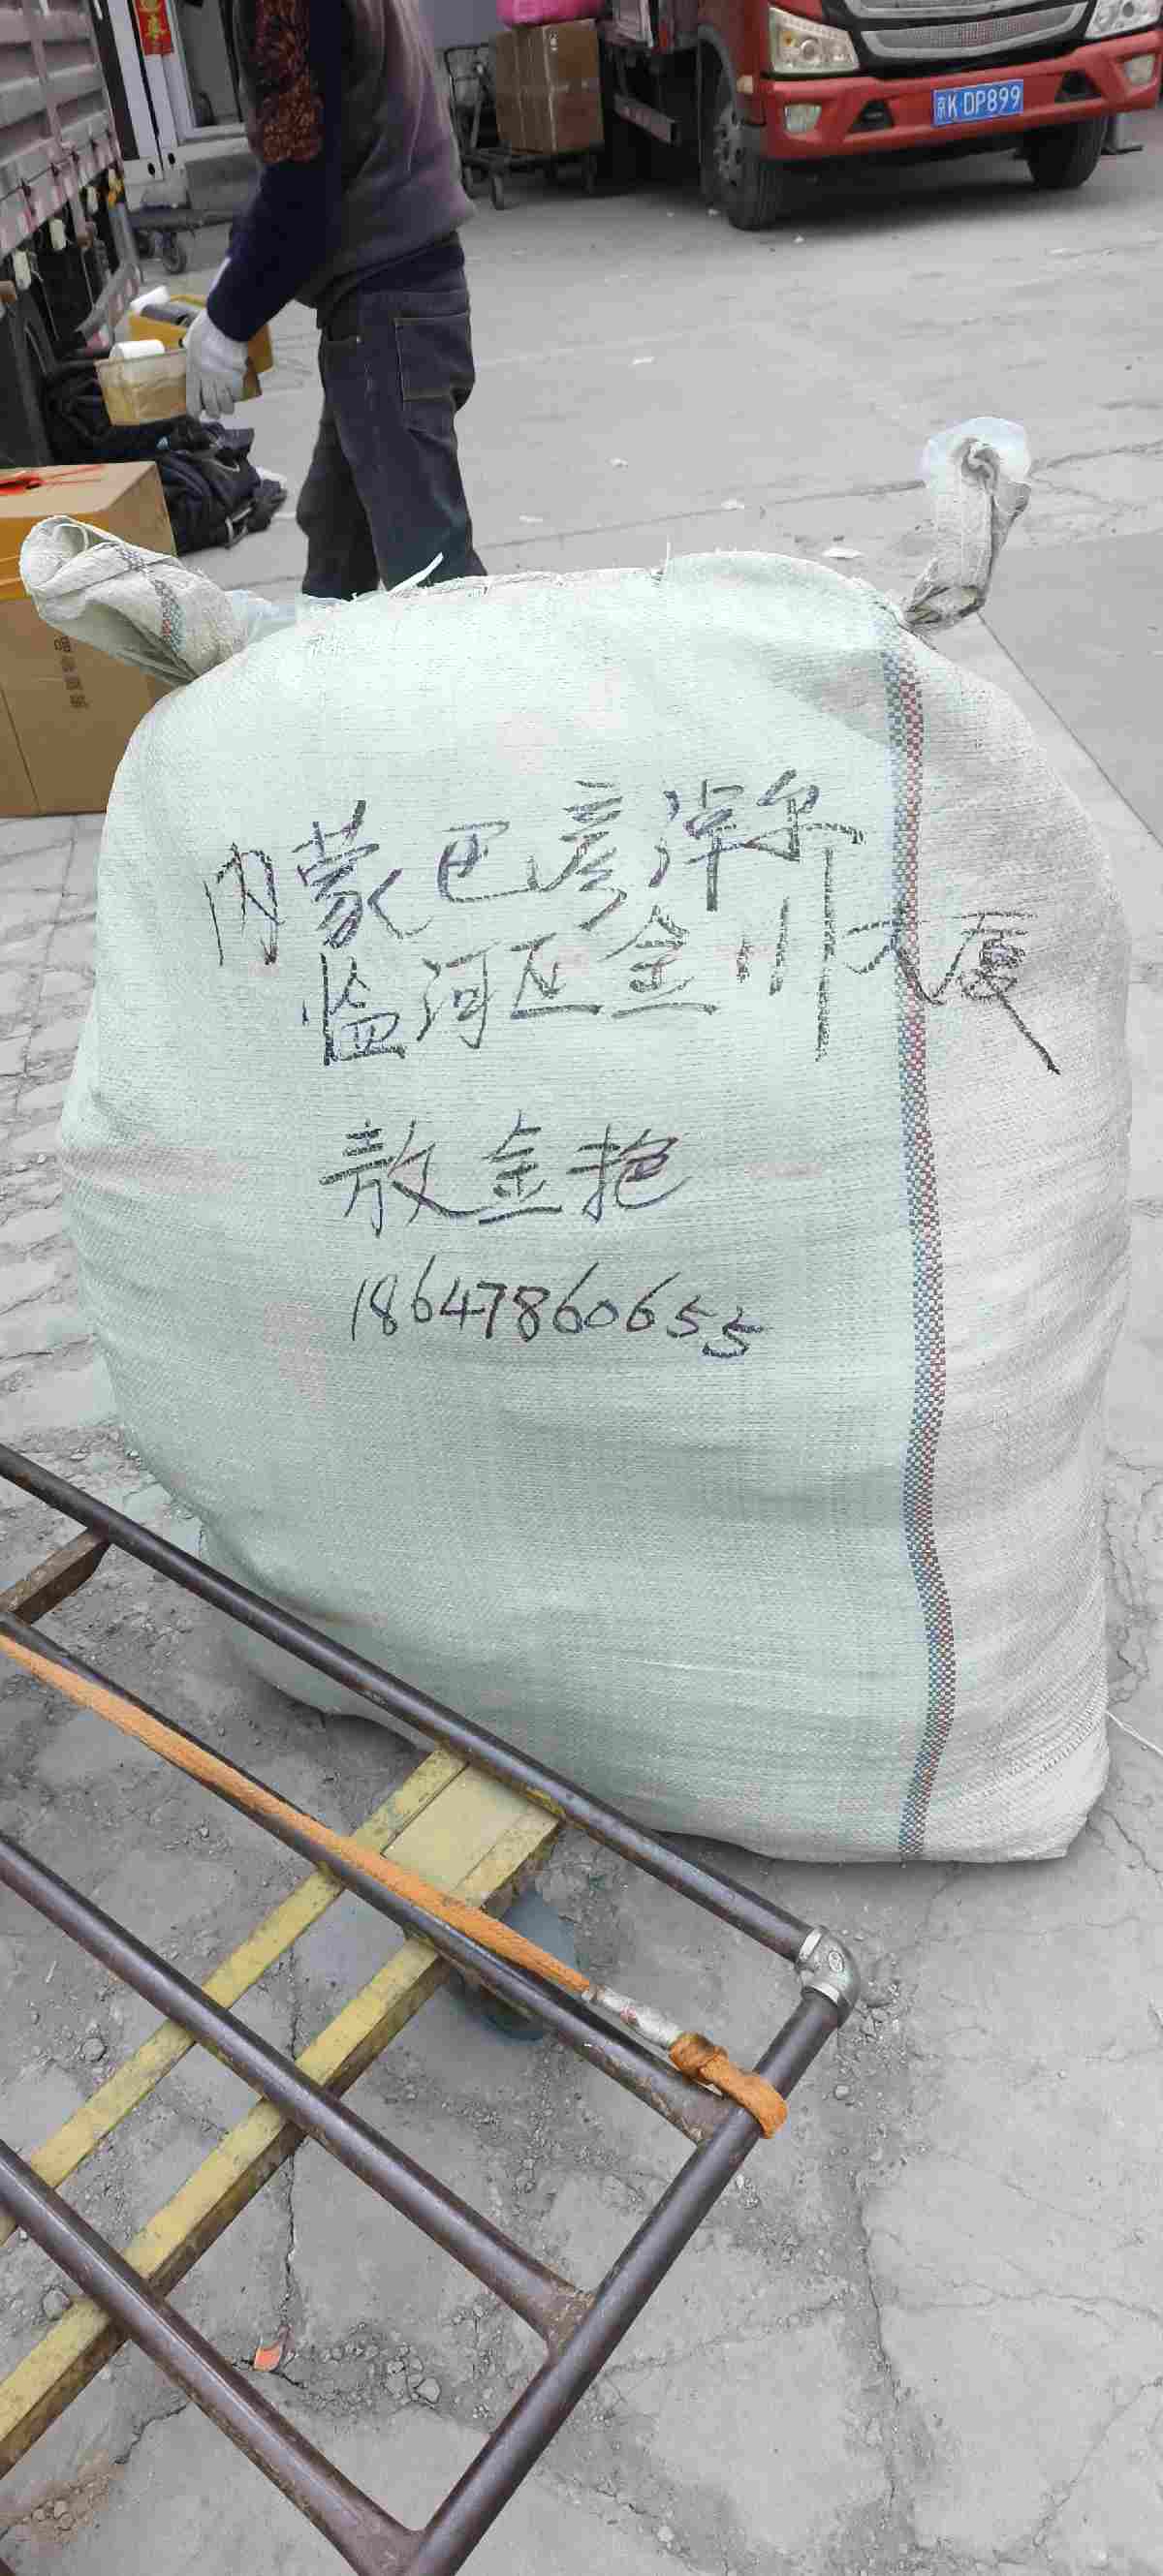 京K·DP899
内蒙巴彦淖尔市
临河区金川大厦
敖金抱
18647860655